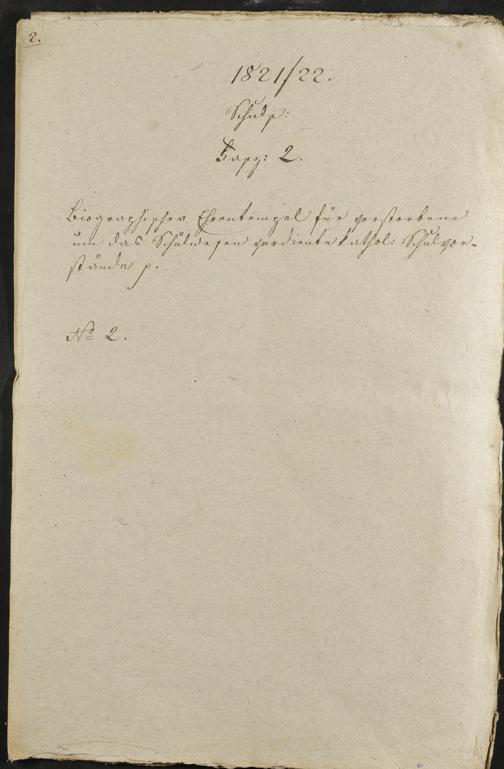 2.
1821/22.
Schul p:
Fasz: 2.
Biographischer Ehrentempel für verstorbene
um das Schulwesen verdiente kathol: Schulvor-
stände p.
No 2.